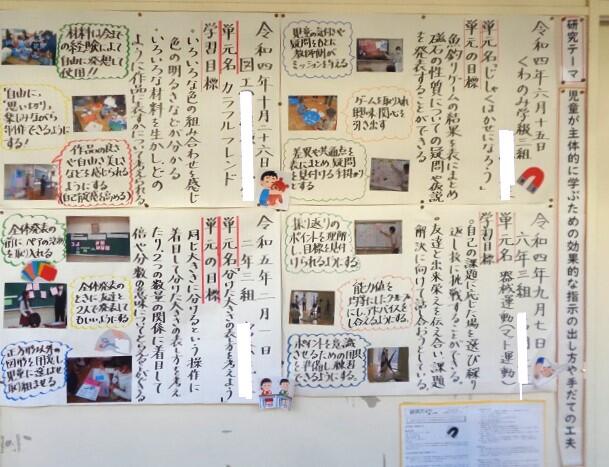 研究テーマ
児童が主体的に学ぶための効果的な指示の出し方や手だての工夫
令和四年六月十五日
くわのみ学級三組
単元名「じしゃくはかせになろう」
単元の目標
魚釣りゲームの結果を表にまとめ
磁石の性質についての疑問や仮説
を発表することができる。
児童の気付きや
疑問をもとに
教師側が
ミッションを与える
ゲームを取り入れ
興味・関心を
引き出す
差異や共通点を
表にまとめ疑問
を見付ける手掛かり
とする
令和四年十月二十六日
図工
単元名 カラフルフレンド
学習目標
いろいろな色の組み合わせを感じ
色の明るさなどが分かる
いろいろな材料を生かし、どの
材料は今まで
の経験によって
自由に発想して
使用!!
「自由に、
思い切り」
楽しみながら
作品の良さ
や自由さ、美しさ
などを感じられる
ようにする
令和四年九月七日
六年三組
単元名 器械運動(マット運動)
学習目標
・自己の課題に応じた場を選び繰り
返し技に挑戦することができる。
・友達と出来栄えを伝え合い、課題
解決に向けて話し合うとしている。
振り返りの
ポイントを理解し
目標と見付
けられるようにする。
能力値を
均等にしたグループ
にし、アドバイスを
し合えるようにする
ポイントを意識
させるための用
具を準備し練習
できるようにする。
令和五年二月一日
二年三組
単元名「分けた大きさの表し方を考えよう」
単元の目標
同じ大きさに分けるという操作に
着目して分けた大きさの表し方を考え
たり、2つの数量の関係に着目して
倍や分数の意味についてとらえている。
全体発表の
前に、ペアの活動
を取り入れる
全体発表の
ときに友達と
2人で発表しても
いいようにする
正方形以外の
図形も用意し
児童に選ばせ
取り組ませる